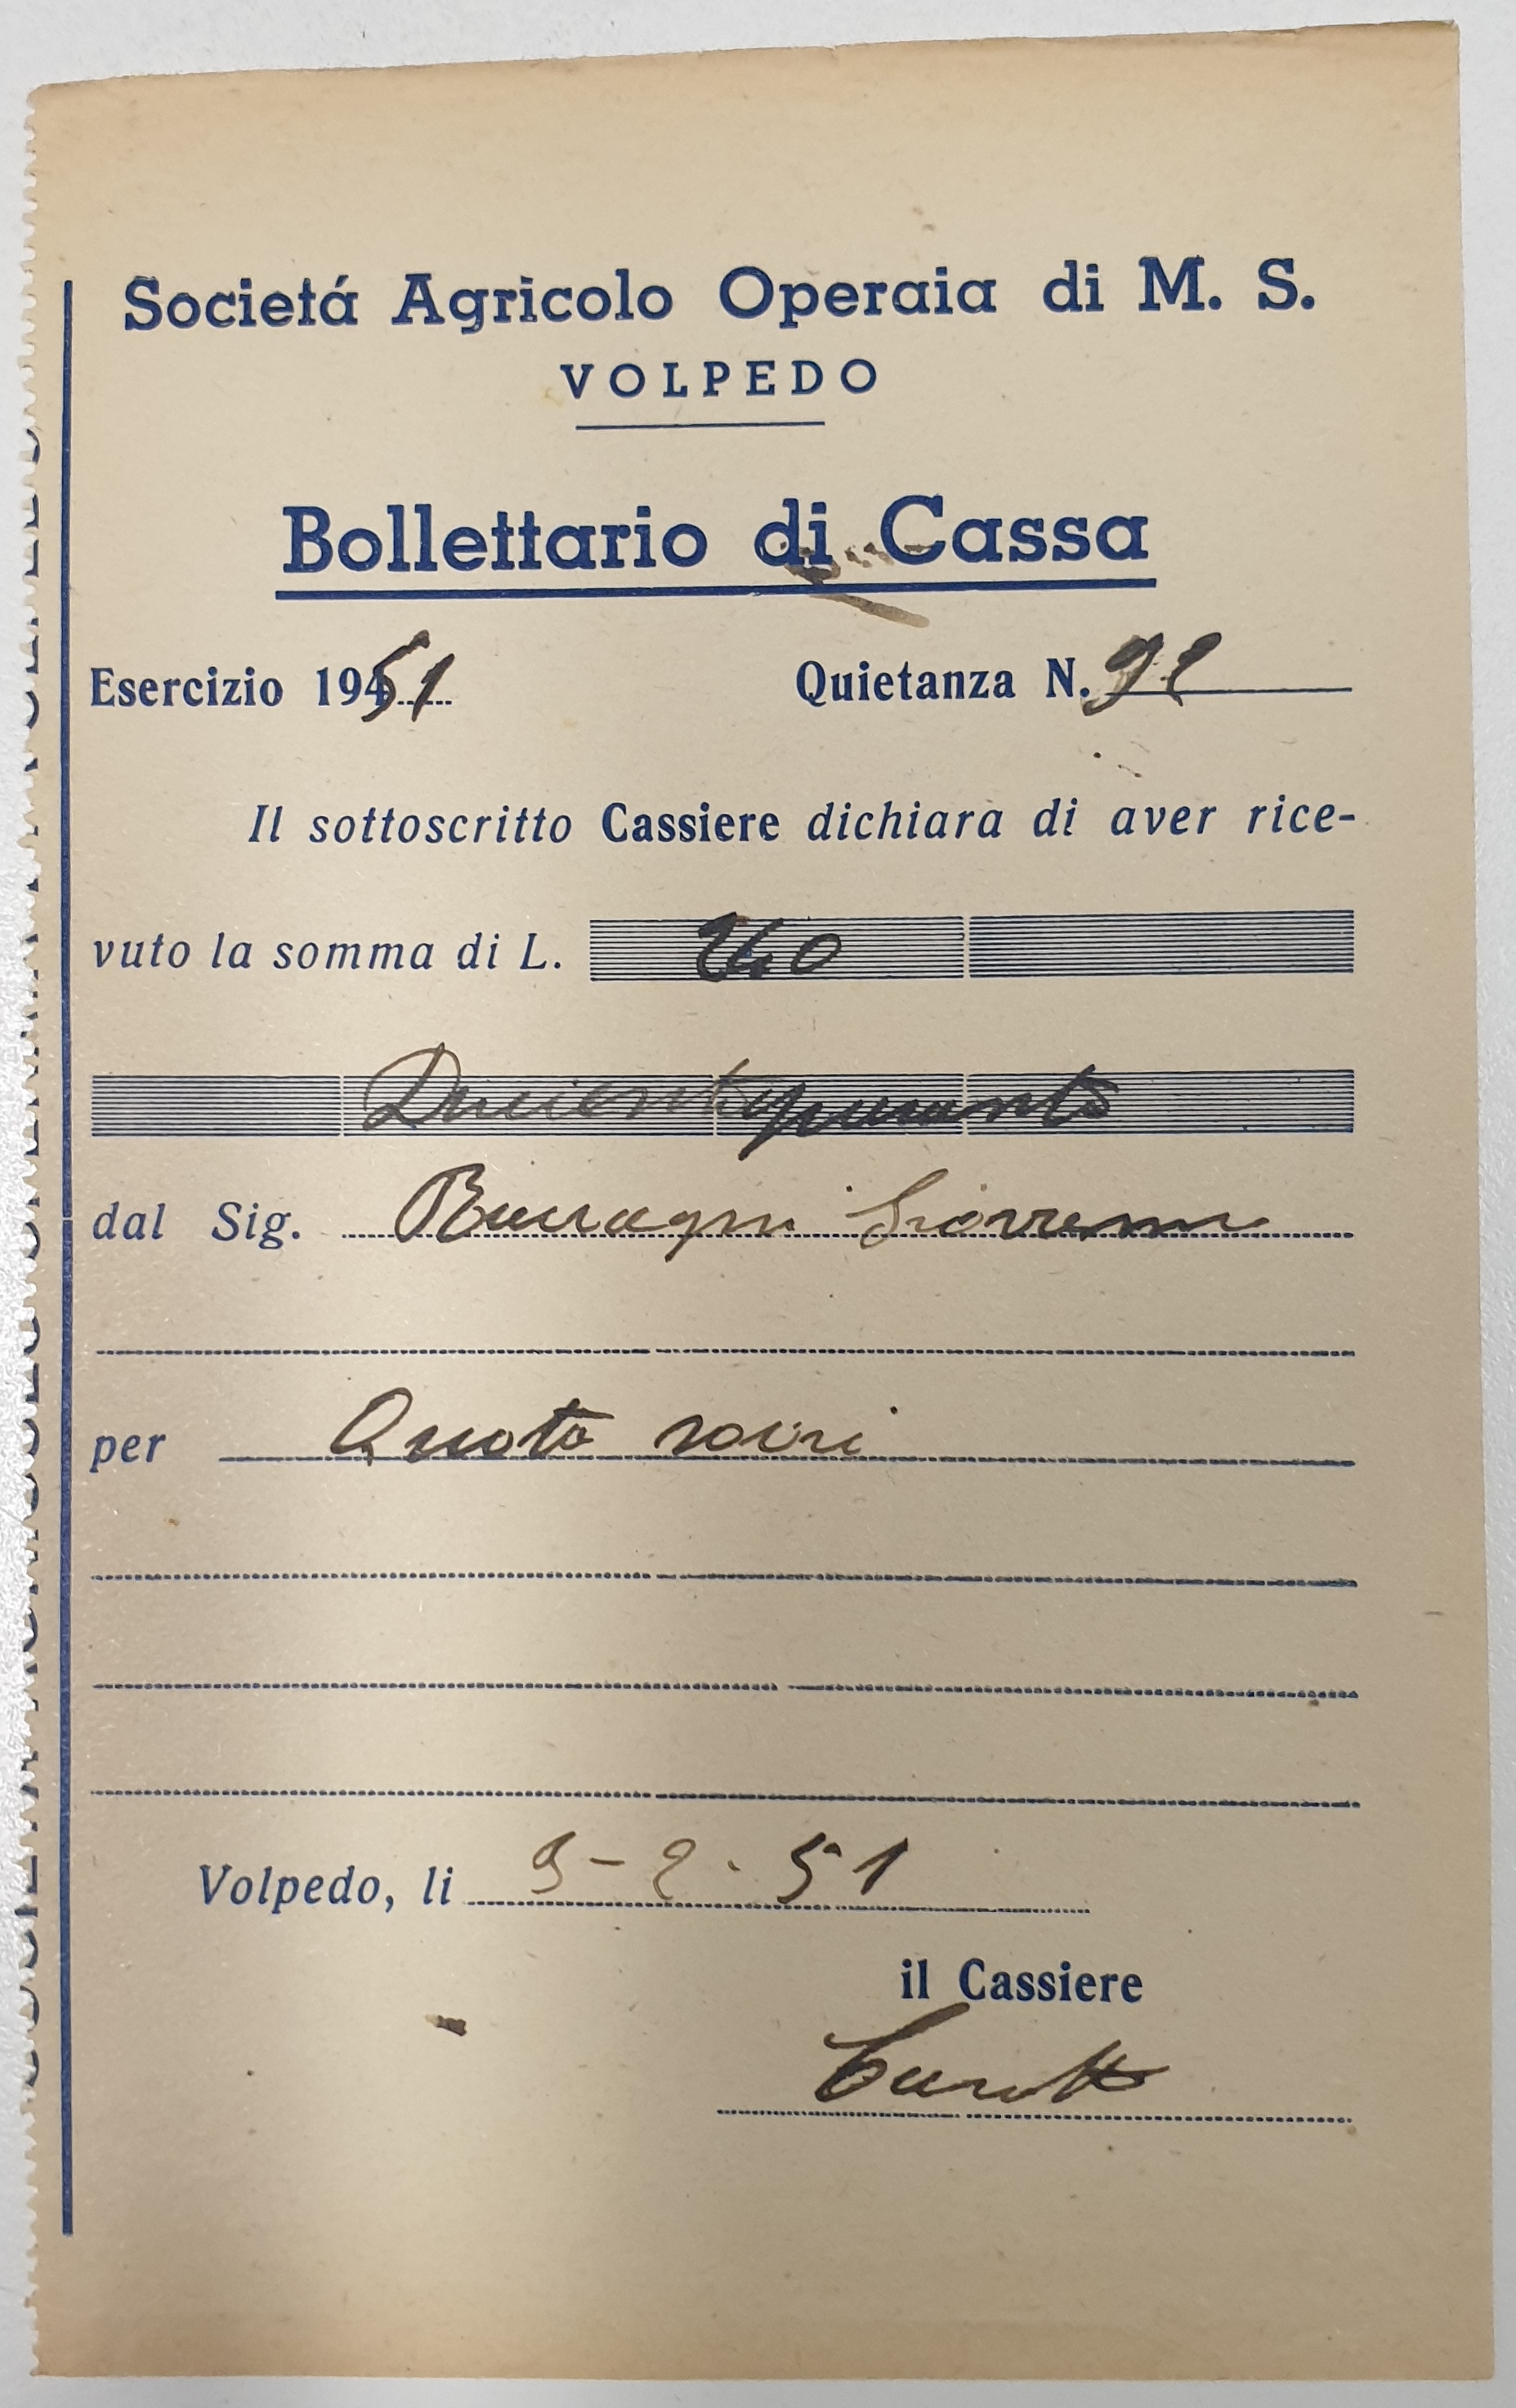 Societá Agricolo Operaia di M. S.
VOLPEDO
Bollettario di Cassa
Esercizio 1951 Quietanza N. 92
Il sottoscritto Cassiere dichiara di aver rice-
vuto la somma di L. 240
Duecentoquaranta
dal Sig. Giovanni
per Quota soci
Volpedo, li 9-2-51
il Cassiere